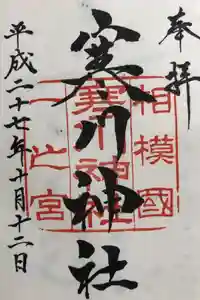 奉拝
相模國
寒川神社
一之宮
寒川神社
平成二十七年十月十二日